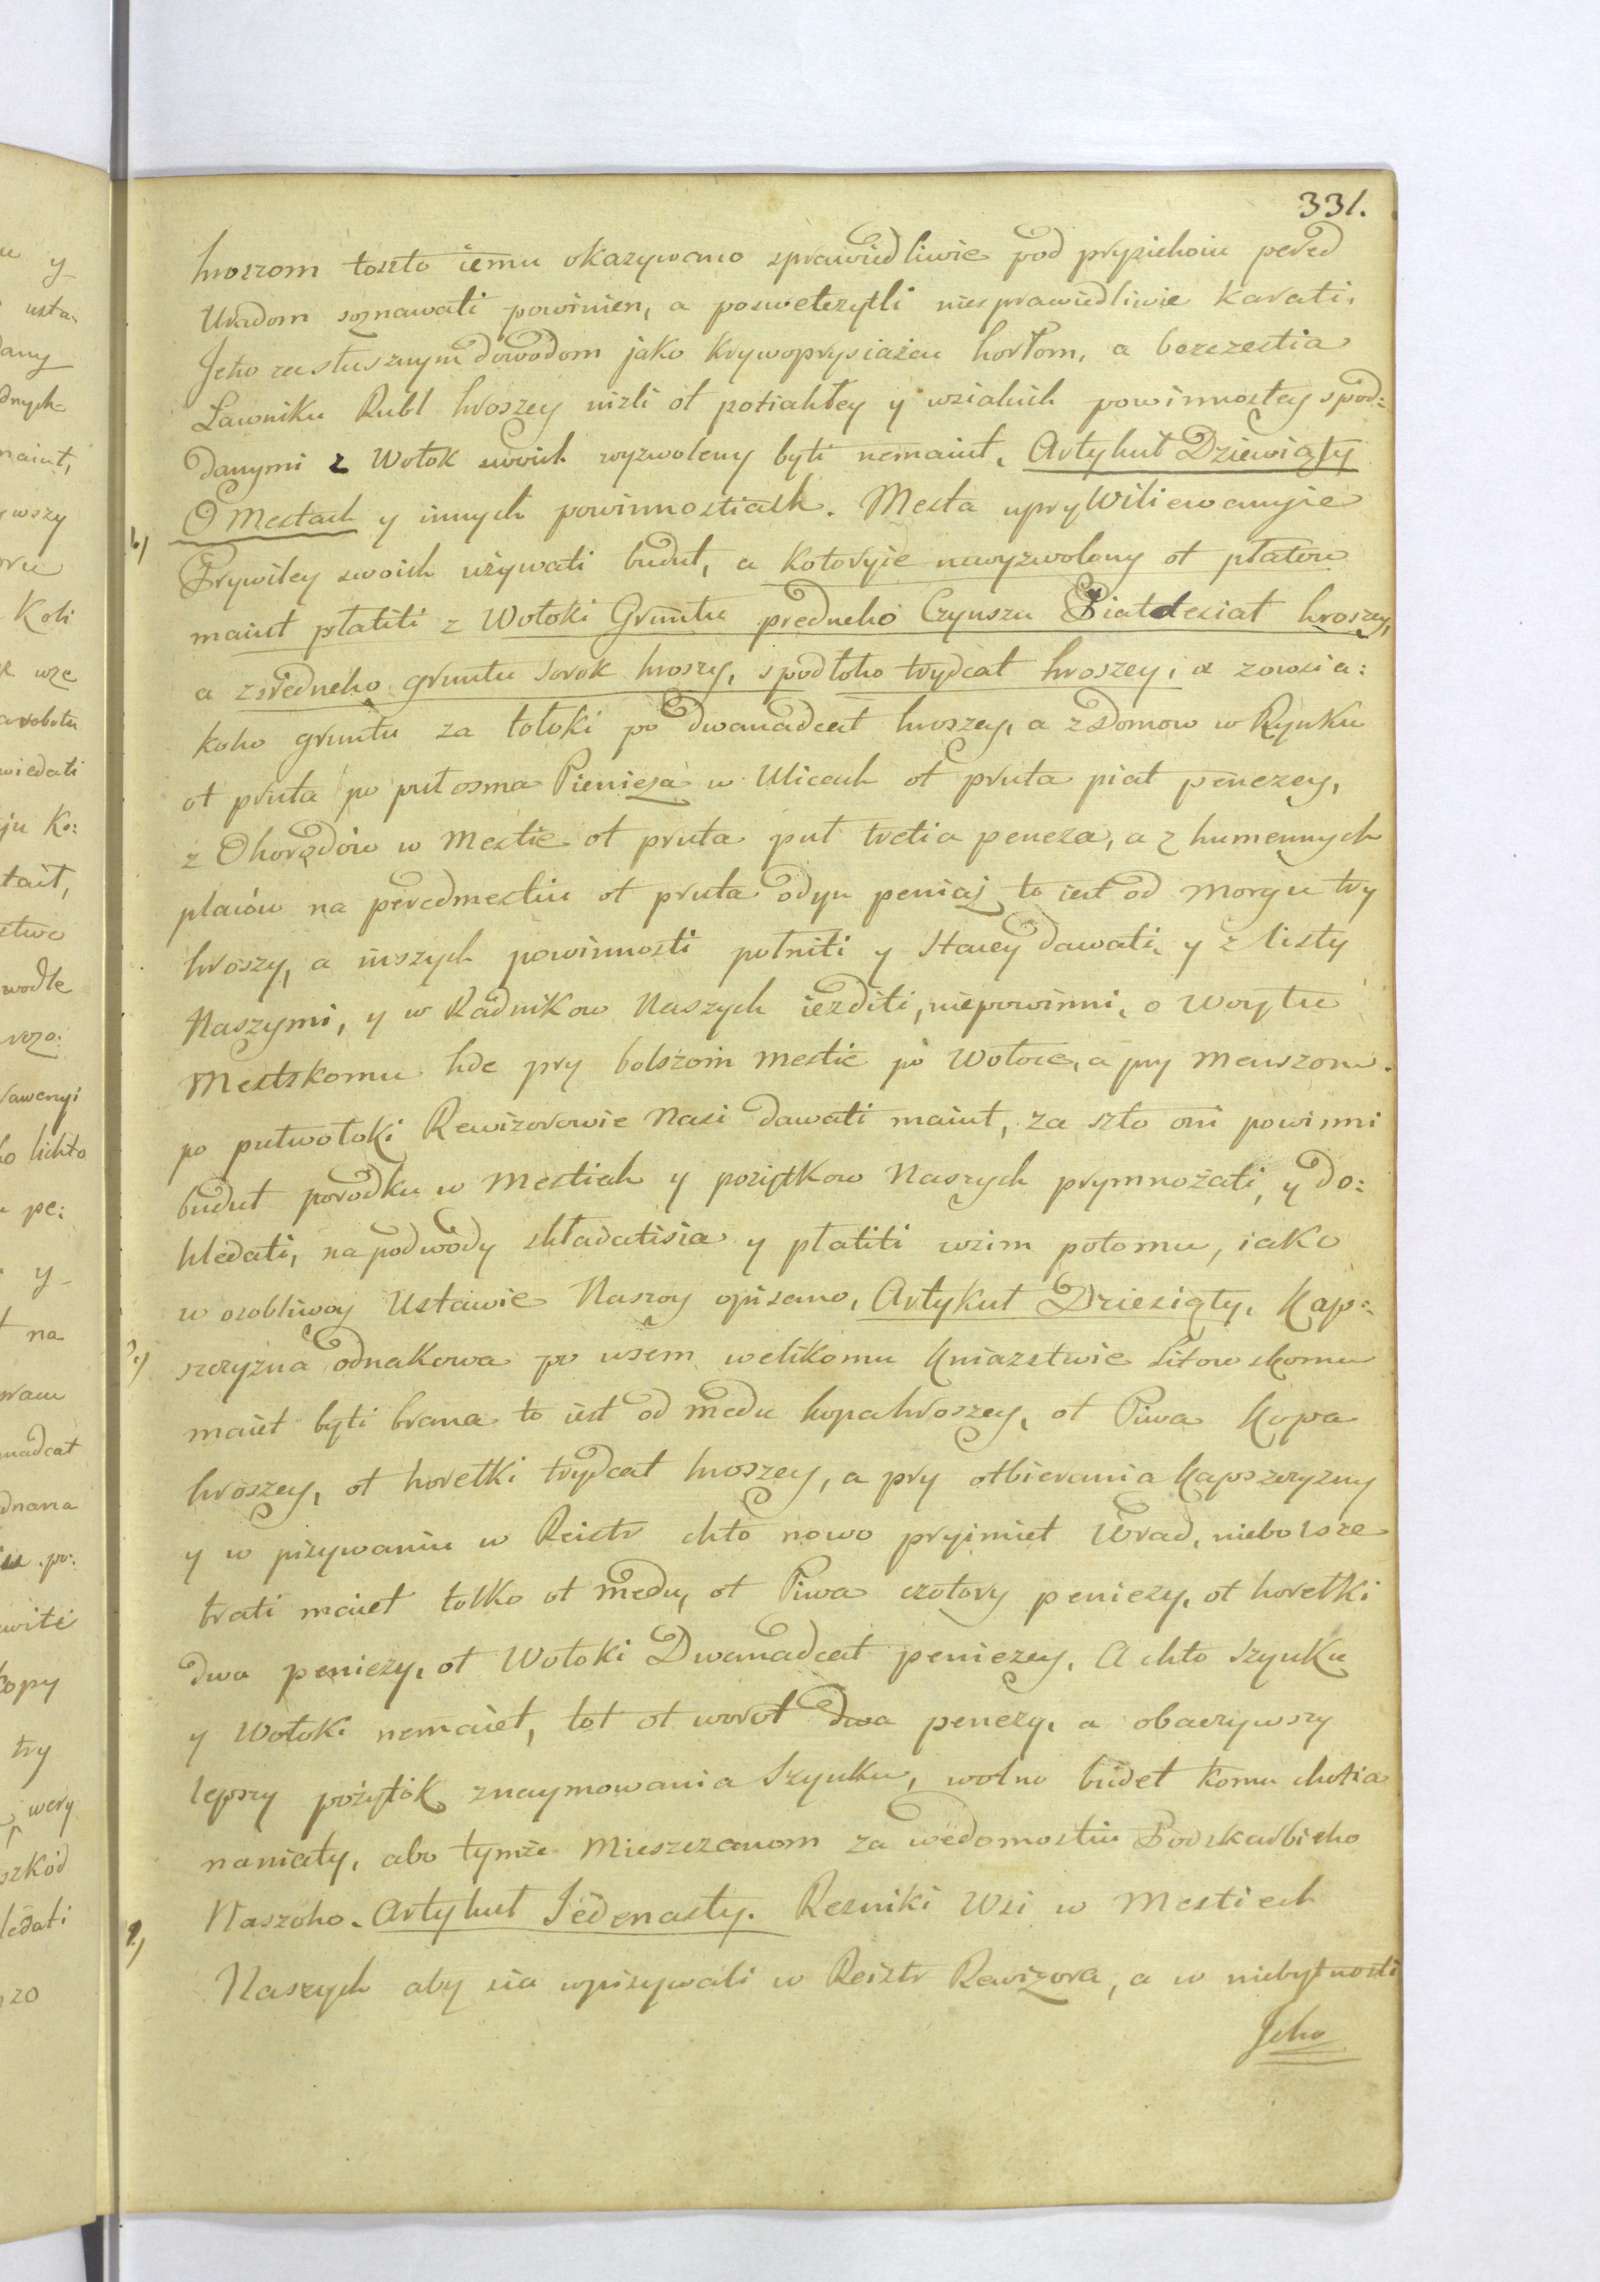 331.
hroszom toszto iemu okazywano sprawiedliwie pod prysiehoiu pered
Uradom soznawati powinien, a poswetczytli niesprawiedliwie karati.
Jeho zasłusznym dowodom jako krywoprysiażcu horłom, a bezczestia
Ławniku Rubl hroszey nizli ot potiahłey y wsiakich powinnostey spod:
danymi z Wołok swoich wyzwoleny byti nemaiut. Artykuł Dziewiąty
O Mestach y innych powinnostiach. Mesta upryWiliewanyie
6)
Prywiley swoich używati budut, a kotoryie newyzwoleny ot płatow
maiut płatiti z Wołoki Gruntu predneho Czynszu Piatdesiat hroszey,
a zsredneho gruntu sorok hroszy, spodłoho trydcat hroszey, a zowsia:
koho gruntu za tołoki po dwanadcat hroszey, a z domow w Rynku
ot pruta po puł osma Pienieza w Ulicach ot pruta piat penezey,
z Ohorodów w Mestie ot pruta puł tretia peneza, a z humennych
placów na peredmestiu ot pruta odyn peniaz to iest od morgu try
hroszy, a inszych powinnosti połniti y Stacey dawati y z listy
Naszymi, y w Radnikow Naszych iezditi, niepowinni, o Woytu
Mestskomu hde pry bolszom mestie po Wołoce, a pry menszom
po pułwołoki Rewizorowie Nasi dawati maiut, za szto oni powinni
budut porodku w Mestiech y pożytkow Naszych prymnożati, y do:
hledati, na podwody składatisia y płatiti wsim potomu, iako
w osobliwoy Ustawie Naszoy opisano. Artykuł Dziesiąty. Kap:
szczyzna odnakowa po wsem welikomu Kniazstwie Litowskomu
maiet byti brana to iest od medu kopa hroszey, ot Piwa Kopa
hroszey, ot horełki trydcat hroszey, a pry otbierania Kapszczyzny
y w pisywaniu w Reistr chto nowo pryimiet Urad, niebolsze
brati maiet tolko ot medu, ot Piwa czotory peniezy, ot horełki
dwa peniezy, ot Wołoki Dwanadcat peniezey. A chto szynku
y Wołoki nemaiet, tot ot worot dwa penezy, a obaczywszy
lepszy pożytok znaymowania Szynku, wolno budet komu chotia
naniaty, abo tymże Mieszczanom za wedomostiu Podskarbieho
Naszoho. Artykuł Jedenasty. Rezniki Wsi w Mestiech
Naszych aby sia wpisywali w Reistr Rewizora, a w niebytnosti
Jeho